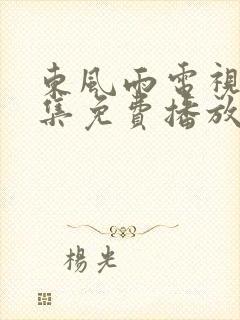 東風雨電視
集免費播放
楊光